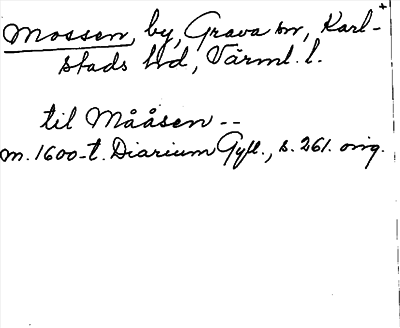 Mossen, by, Grava sn, Karl-
stads hd, Värml. l.
til Mååsen --
m. 1600-t. Diarium Gyll., s. 261. orig.